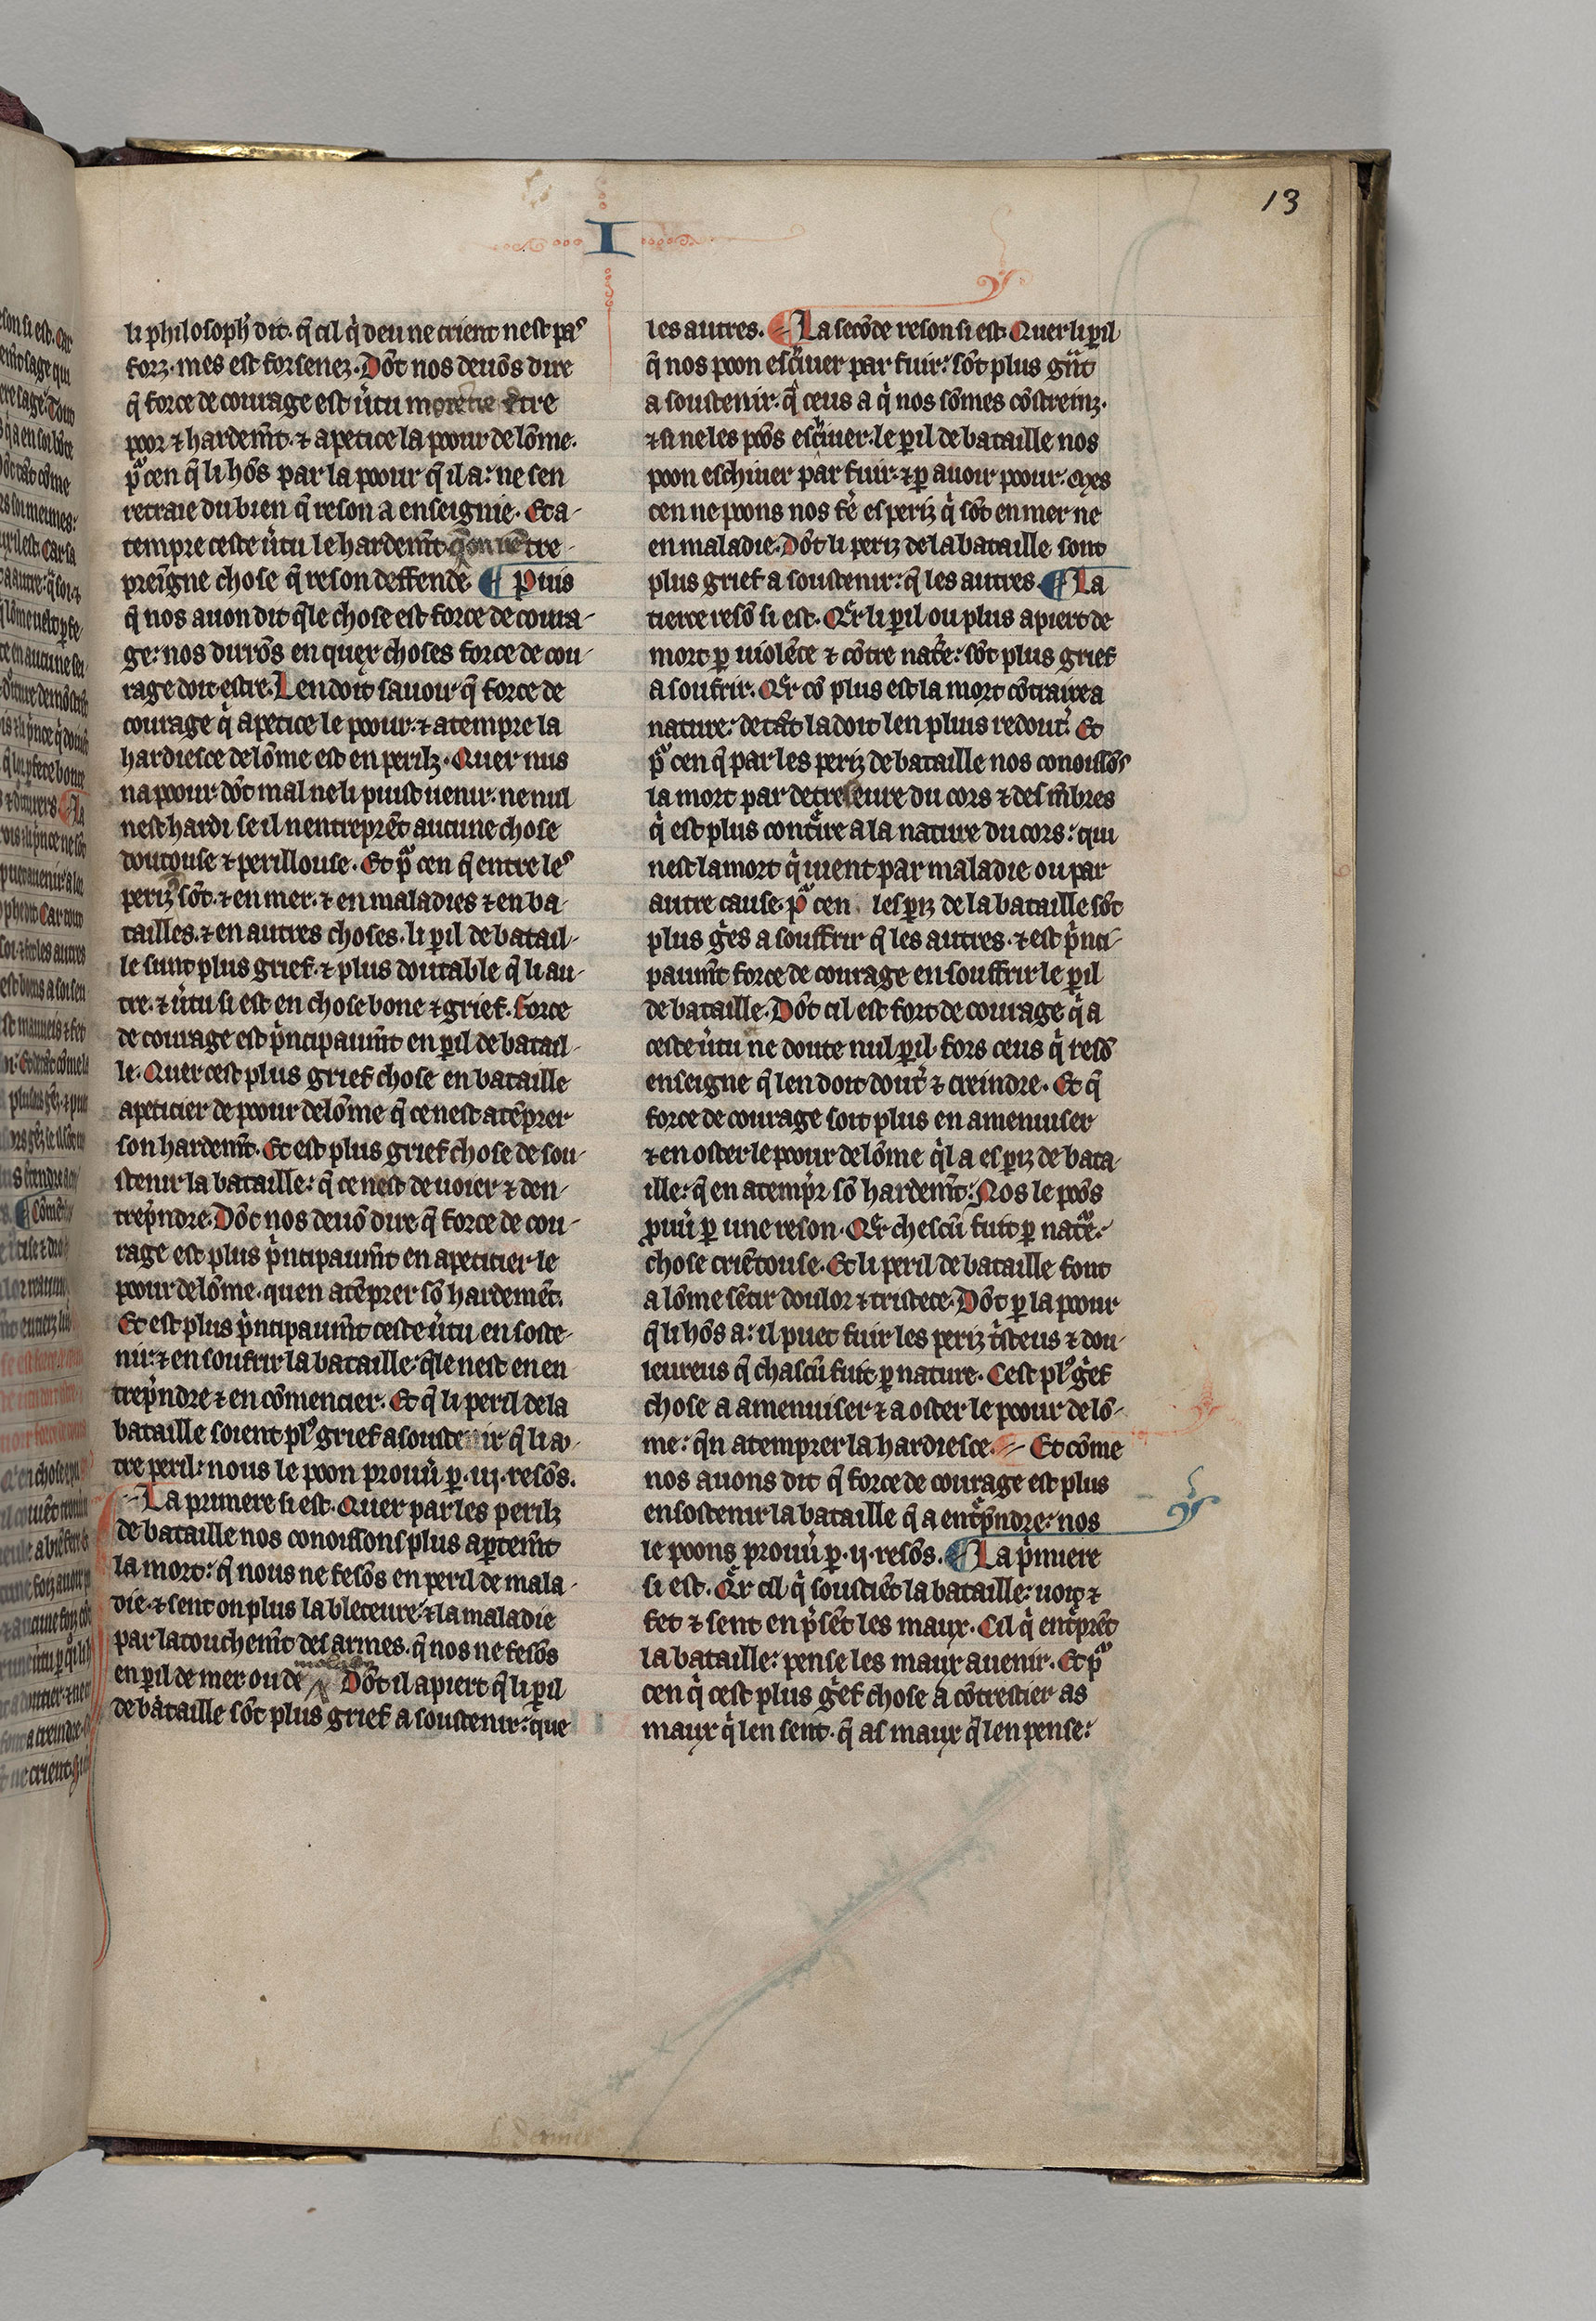 13
I
li philosoph' dit. q̃ cil q̇ deu ne crient nest pas
forz. mes est forsenez. Dõt nos deuõs dire
q̃ force de courage est ũtu moienne entre
poor ⁊ hardem̃t. ⁊ apetice la poour de lõme.
pͦ cen q̃ li hõs par la poour q̃ il a: ne sen
retraie du bien q̃ reson a enseignie. Et a-
tempre ceste ũtu le hardem̃t q̃ on nẽtre-
preĩgne chose q̃ reson deffende. ¶ Puis
q̃ nos auon dit q̃le chose est force de coura-
ge: nos dirõs en quex choses force de cou-
rage doit estre. Len doit sauoir q̃ force de
courage q̇ apetice le poour. ⁊ atempre la
hardiesce de lõme est en perilz. Quer nus
na poour dõt mal ne li puist uenir. ne nul
nest hardi se il nentreprẽt aucune chose
doutouse ⁊ perillouse. Et pͦ cen q̃ entre les
periz sõt. ⁊ en mer. ⁊ en maladies ⁊ en ba-
tailles. ⁊ en autres choses. li ꝑil de batail-
le sunt plus grief. ⁊ plus doutable q̃ li au-
tre. ⁊ ũtu si est en chose bone ⁊ grief. Force
de courage est p̃ncipaum̃t en ꝑil de batail-
le. Quer cest plus grief chose en bataille
apeticier de poour de lõme q̃ ce nest atẽprer
son hardem̃t. Et est plus grief chose de sou-
stenir la bataille: q̃ ce nest de uoier ⁊ den-
trep̃ndre. Dõt nos deuõ dire q̃ force de cou-
rage est plus p̃ncipaum̃t en apeticier le
poour de lõme. quen atẽprer sõ hardemẽt.
Et est plus p̃ncipaum̃t ceste ũtu en soste-
nir: ⁊ en soufrir la bataille: q̃le nest en en
trep̃ndre ⁊ en cõmencier. Et q̃ li peril de la
bataille soient plꝰ grief a soustenir q̃ li au-
tre peril: nous le poon prouũ ꝑ .iij. resõs.
La primere si est. Quer par les perilz
de bataille nos conoissons plus aꝑtem̃t
la mort: q̃ nous ne fesõs en peril de mala-
die. ⁊ sent on plus la bleceure: ⁊ la maladie
par latouchem̃t des armes. q̃ nos ne fesõs
en ꝑil de mer ou de maladie Dõt il apiert q̃ li ꝑil
de bataille sõt plus grief a soustenir: que
les autres. ¶ La secõde reson si est. Quer li ꝑil
q̃ nos poon eschiuer par fuir: sõt plus gñt
a soustenir. q̃ ceus a q̇ nos sõmes cõstreinz.
⁊ si ne les poõs eschiuer. le ꝑil de bataille nos
poon eschiuer par fuir. ⁊ ꝑ auoir poour: Mes
cen ne poons nos fe' es periz q̇ sõt en mer ne
en maladie. Dõt li periz de la bataille sont
plus grief a soustenir: q̃ les autres. ¶ La
tierce resõ si est. Qr li ꝑil ou plus apiert de
mort ꝑ uiolẽce ⁊ cõtre nat̃e: sõt plus grief
a soufrir. Qr cõ plus est la mort cõtraire a
nature: de tãt la doit len plus redout'. Et
pͦ cen q̃ par les periz de bataille nos conoissõs
la mort par detreseure du cors ⁊ des m̃bres
q̇ est plus cont̃ire a la nature du cors: qui
nest la mort q̇ uient par maladie ou par
autre cause. pͦ cen les ꝑiz de la bataille sõt
plus g̃es a souffrir q̃ les autres. ⁊ est p̃nci-
paum̃t force de courage en souffrir le ꝑil
de bataille. Dõt cil est fort de courage q̇ a
ceste ũtu ne doute nul ꝑil. fors ceus q̇ resõ
enseigne q̃ len doit dout' ⁊ creindre. Et q̃
force de courage soit plus en amenuiser
⁊ en oster le poour de lõme q̇l a es ꝑiz de bata-
ille: q̃ en atemp̃r sõ hardem̃t: Nos le poõs
ꝓuũ ꝑ une reson. Qr chescũ fuit ꝑ nat̃e:
chose criẽtouse. Et li peril de bataille font
a lõme sẽtir doulor ⁊ tristece. Dõt ꝑ la poour
q̃ li hõs a: il puet fuir les periz t̃steus ⁊ dou-
leureus q̃ chascũ fuit ꝑ nature. Cest plꝰ g̃ef
chose a amenuiser ⁊ a oster le poour de lõ-
me: q̃n atemprer la hardiesce. Et cõme
nos auons dit q̃ force de courage est plus
en sostenir la bataille q̃ a ent̃p̃ndre: nos
le poons prouũ ꝑ .ij. resõs. ¶ La p̃miere
si est. Qr cil q̇ soustiẽt la bataille: uoit ⁊
fet ⁊ sent en p̃sẽt les maux. Cil q̇ ent̃prẽt
la bataille: pense les maux auenir. Et pͦ
cen q̇ cest plus g̃ef chose a cõtrestier as
maux q̇ len sent. q̃ as maux q̃ len pense: